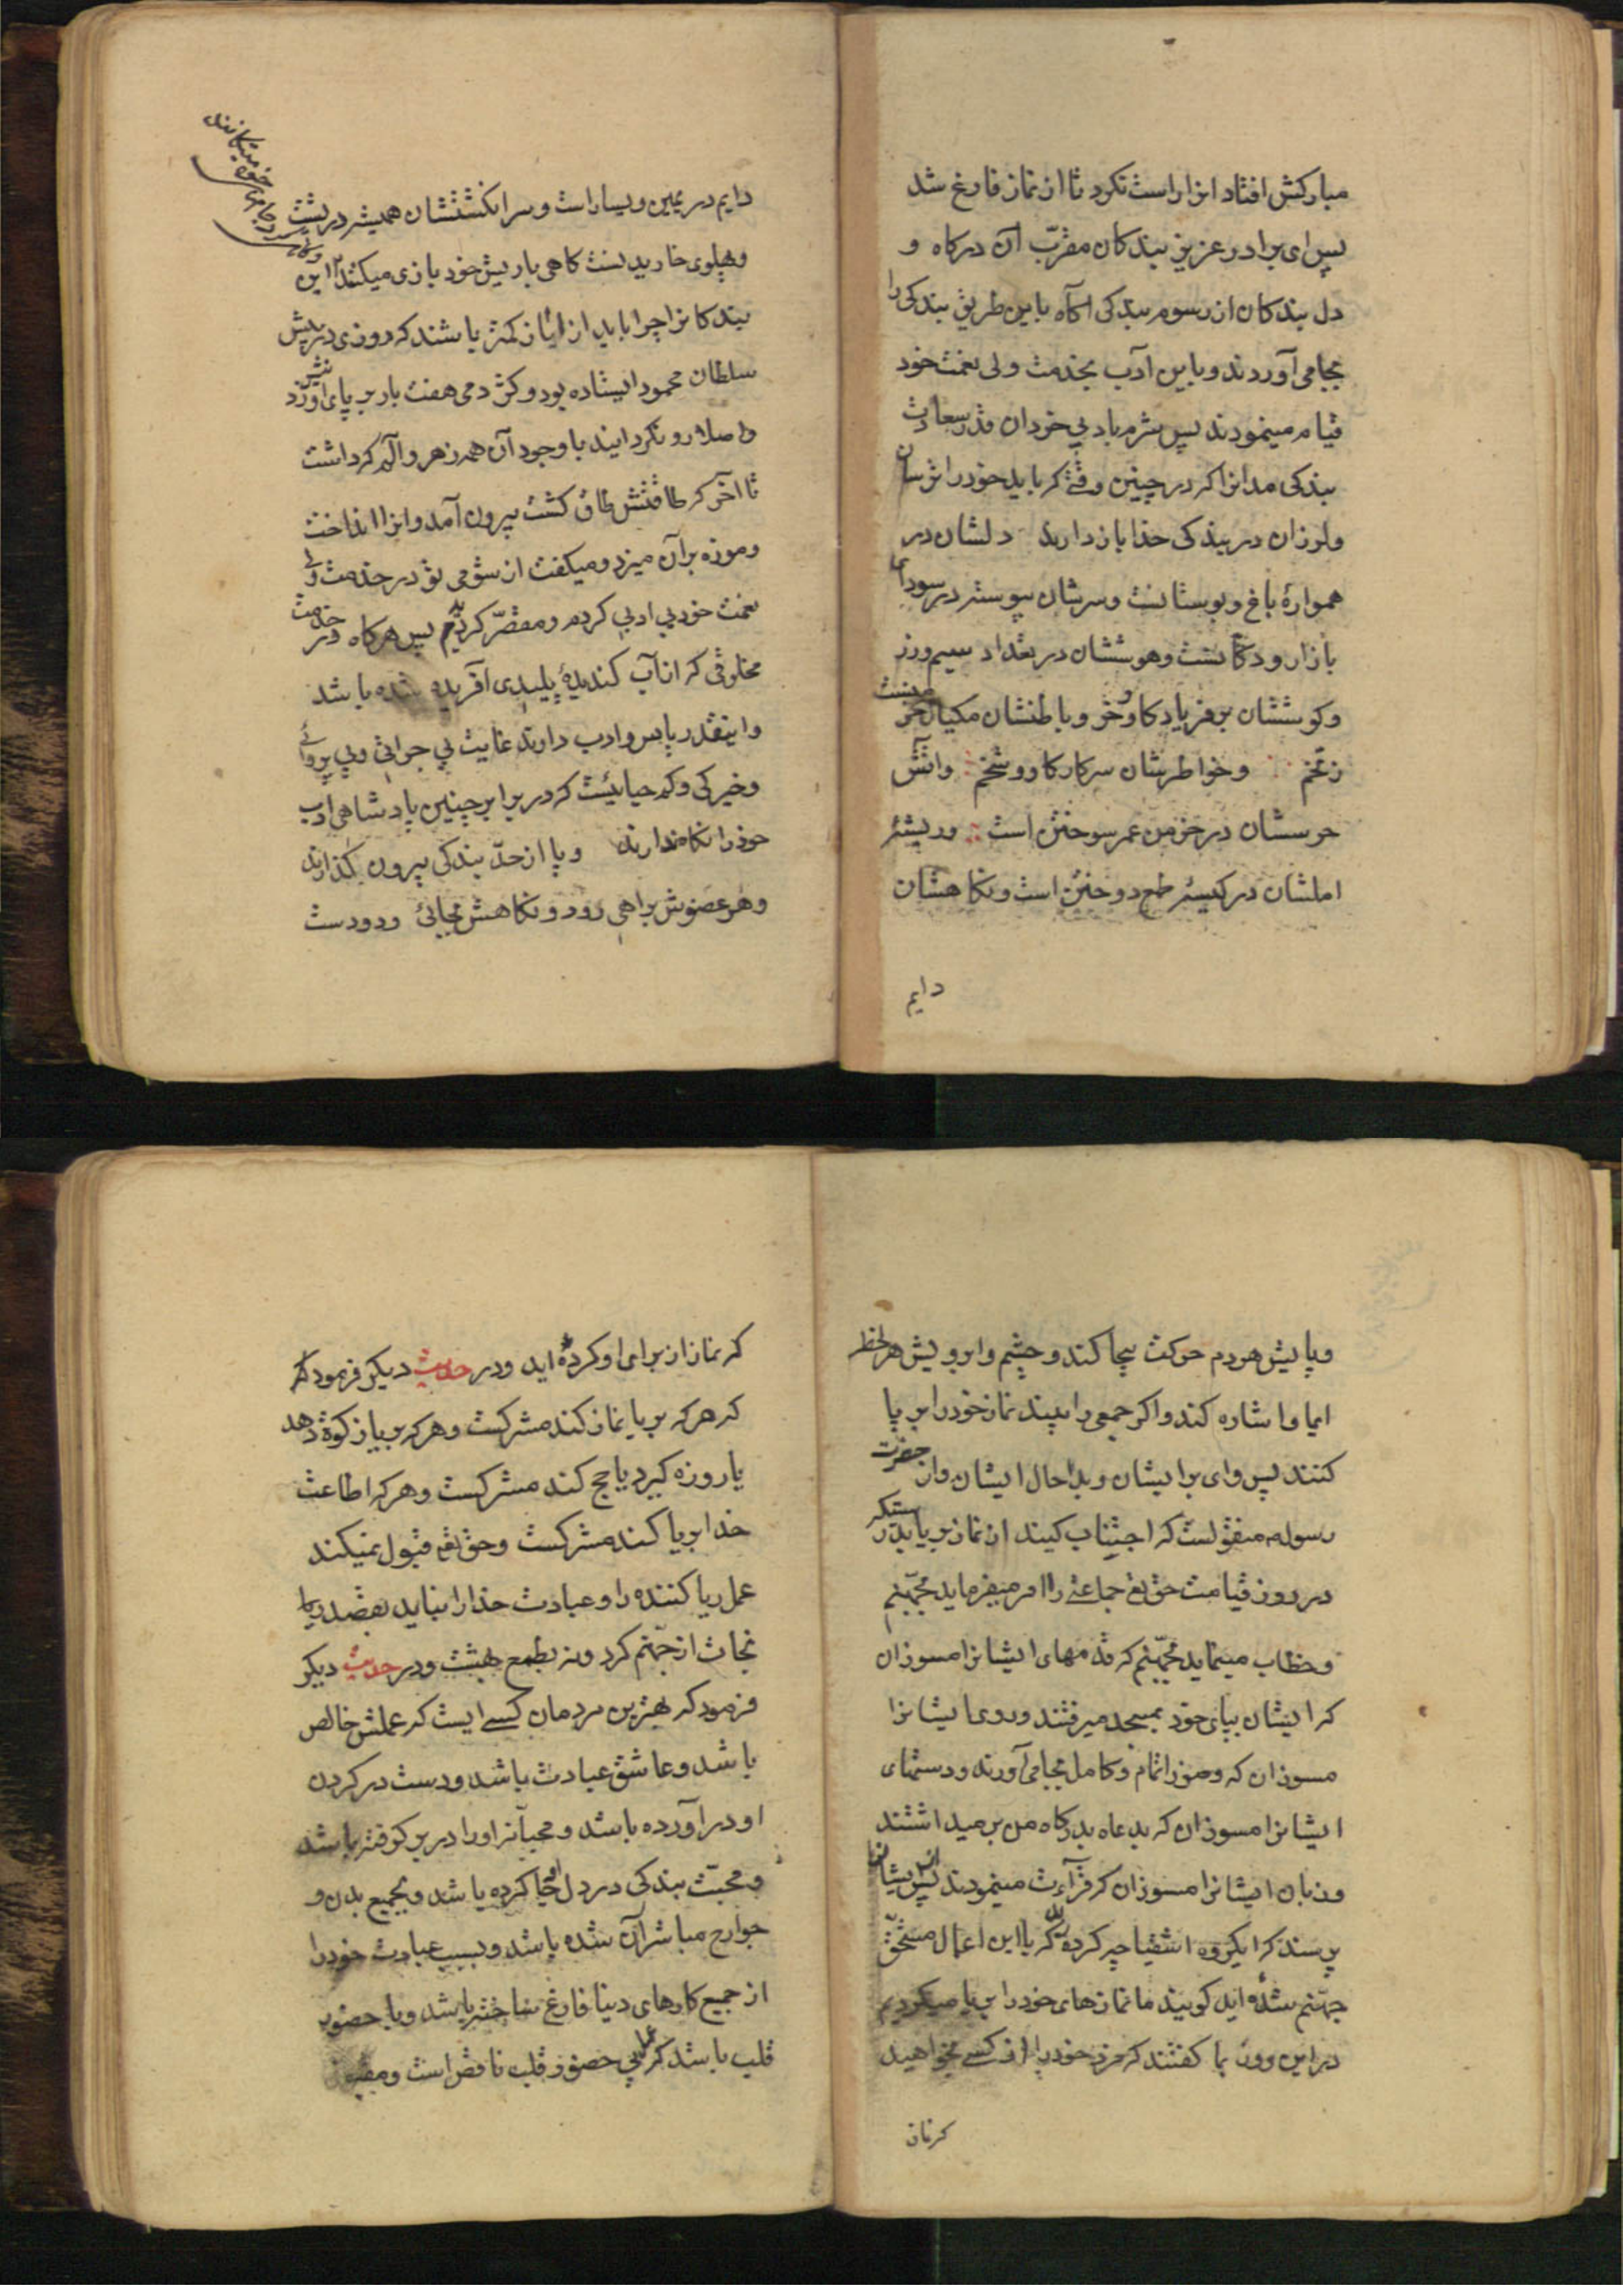 مبارکش افتاد انرا راست نکرد تا از نماز فارغ شد
پس ای برادر عزیز بندکان مقرّب آن درکاه و
دل بندکان از رسوم بندکی آکاه باین طریق بندکی را
بجا می آوردند و باین آدب بخدمت ولی نعمت خود
قیام مینمودند پس شرم باد بی خردان
بندکی مدانرا که در چنین وقتی که باید خود را ترسان
ولرزان در بندکی خدا باز دارند دلشان در
هموارهٔ باغ و بوستانست و سرشان پیوسته در سودای
بازار و دکانست وهوششان در بغداد سیم وزر
وکوششان بر فریاد کاو و خر و باطنشان مکیال
و خواطرشان سرکار کاو و شخم واتش
حرسشان در خرمن عمر سوختن است وریشهٔ
املشان در کیسهٔ طمع دوختن است ونکاهشان
دایم
دایم در یمین ویسار است و سر انکشتشان همیشه در پشت
وپهلوی خاریدنست کاهی با ریش خود بازی میکنند این
بندکانرا چرا باید از ایاز کمتر باشند که روزی در پیش
سلطان محمود ایستاده بود وکژدمی هفت بار بر پای او نیش زد
واصلا رو نکردانید با وجود آن همه زهر و الم که داشت
تا آخر که طاقتش طاق کشت بیرون آمد وانرا انداخت
وموزه برآن میزد ومیکفت از شومی تو در خدمت ولی
نعمت خود بی ادبی کردم ومقصّر کردیدم پس هرکاه در خدمت
مخلوقی که از آب کندیدهٔ پلیدی آفریده شده باشد
واینقدر پاس وادب دارند غایت بی جرأتی وبی پروائی
وخیرکی وکم حیائیست که در برابر چنین پادشاهی ادب
خود را نکاه ندارند وپا از حدّ بندکی بیرون کذارند
وهر عضوش براهی رود ونکاهش بجائی ودو دست
وپایش هر دم حرکت بیجا کند وچشم وابرویش هر لحظه
ایما واشاره کند واکر جمعی را ببیند نماز خود را بریا
کنند پس وای بر ایشان وبدا حال ایشان واز حضرت
رسول م منقولست که اجتناب کنید از نماز بریا بدرستیکه
در روز قیامت حق تع جماعتی را امر میفرماید بجهّنم
وخطاب مینماید بجهّنم که قدمهای ایشانرا مسوزان
که ایشان بپای خود بمسجد میرفتند وروی ایشانرا
مسوزان که وضو را تمام وکامل بجا می آورند ودستهای
ایشانرا مسوزان که بدعاه بدرکاه من بر میداشتند
وزبان ایشانرا مسوزان که قرآءت مینمودند پس از ایشان
پرسند که ایکروه اشقیا چه کرده اید که با این اعمال مستحقّ
جهّنم شده اید کویند ما نماز های خود را بریا میکردیم
در این وقت بما کفتند که مزد خود را از کسی بخواهید
که نماز
که نماز از برای او کرده اید ودر حدیث دیکر فرمود که
که هر که بریا نماز کند مشرکست وهر که بریا زکوة دهد
یا روزه کیرد یا حج کند مشرکست وهر که اطاعت
خدا بریا کند مشرکست وحق تع قبول نمیکند
عمل ریا کننده را وعبادت خدا را نباید بقصد ریا
نجات از جهّنم کرد ونه بطمع بهشت ودر حدیث دیکر
فرمود که بهترین مردمان کسی ایست که عملش خالص
باشد وعاشق عبادت باشد ودست در کردن
او در آورده باشد ومحبانه او را در بر کرفته باشد
ومحبّت بندکی در دل او جا کرده باشد وبجمیع بدن و
جوارح مباشر آن شده باشد وبسبب عبادت خود را
از جمیع کارهای دنیا فارغ ساخته باشد وبا حضور
قلب باشد که عمل بی حضور قلب ناقص است